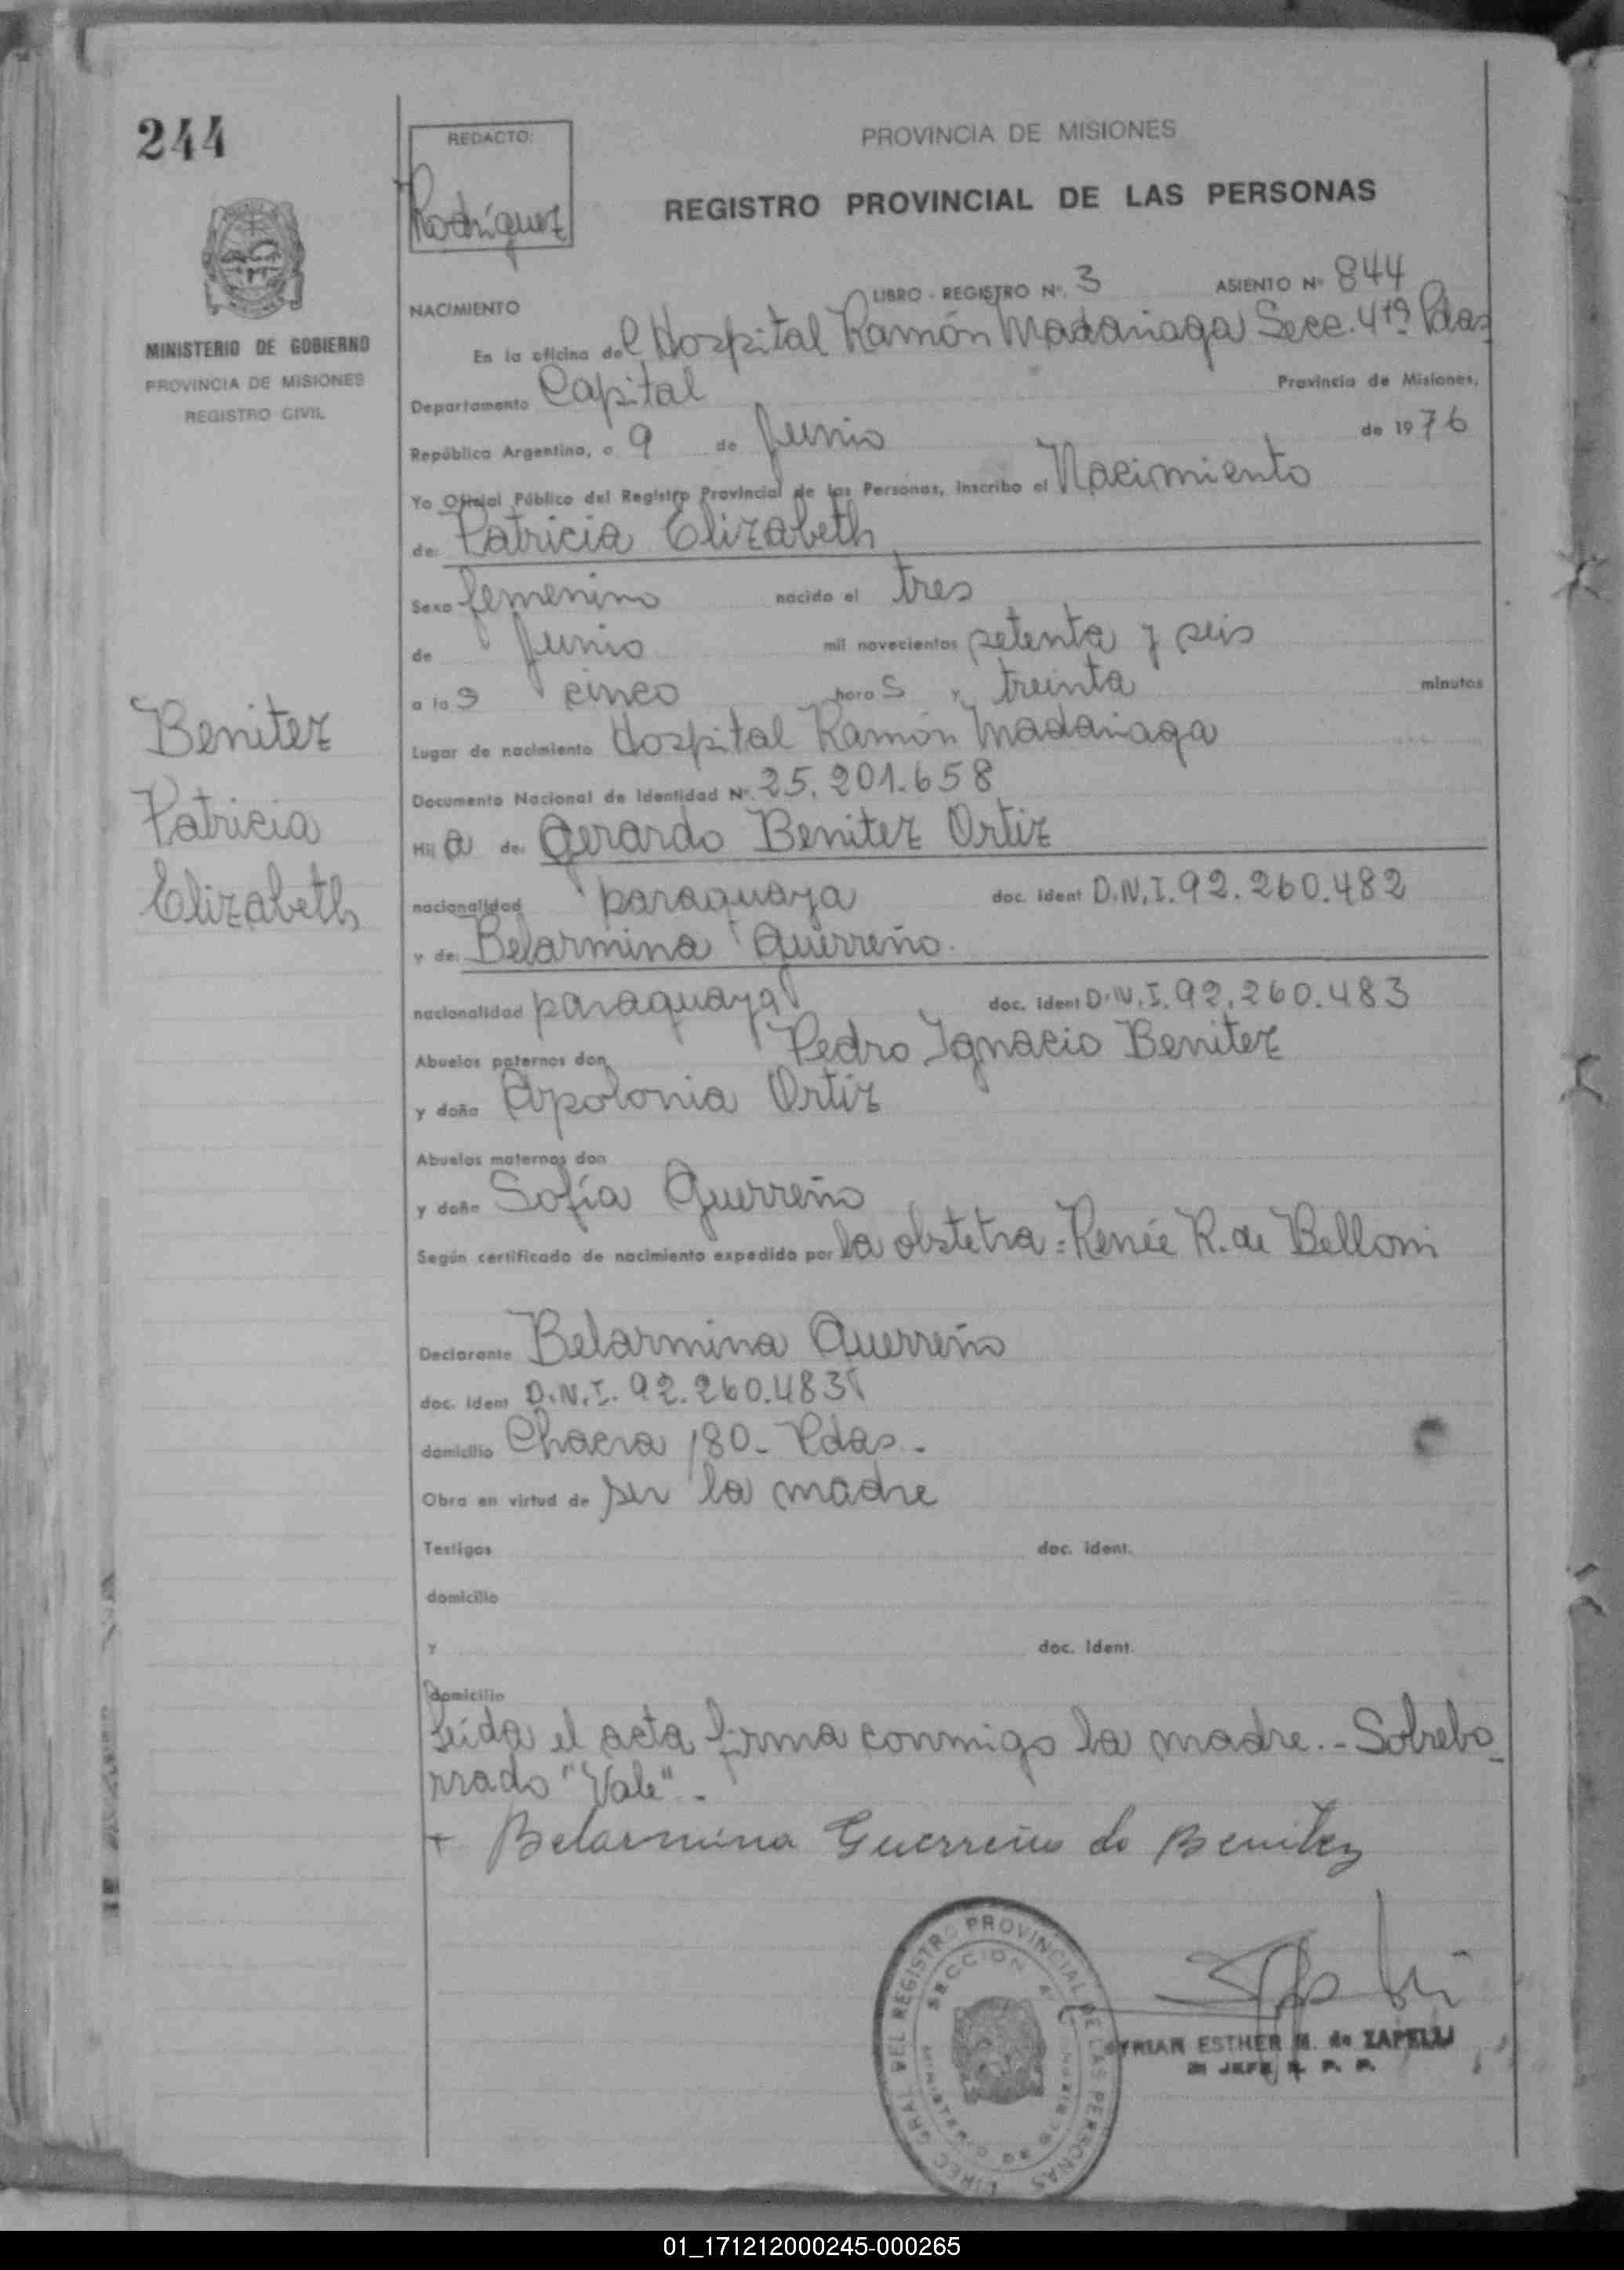 244
REDACTO:
Rodríguez
PROVINCIA DE MISIONES
REGISTRO PROVINCIAL DE LAS PERSONAS
MINISTERIO DE GOBIERNO
PROVINCIA DE MISIONES
REGISTRO CIVIL
NACIMIENTO LIBRO - REGISTRO Nº. 3 ASIENTO Nº 844
En la oficina del Hospital Ramón Madariaga Secc. 4ta Pdas
Departamento Capital Provincia de Misiones,
República Argentina, a 9 de Junio de 1976
Yo Oficial Público del Registro Provincial de las Personas, inscribo el Nacimiento
de: Patricia Elizabeth
Sexo femenino nacido el tres
de Junio mil novecientos setenta y seis
a las cinco horas y treinta minutos
Lugar de nacimiento Hospital Ramón Madariaga
Documento Nacional de Identidad Nº. 25.201.658
Hija de: Gerardo Benitez Ortiz
nacionalidad paraguaya doc. ident D.N.I. 92.260.482
y de: Belarmina Guerreño.
nacionalidad paraguaya doc. ident D.N.I. 92.260.483
Abuelos paternos don Pedro Ignacio Benitez
y doña Apolonia Ortiz
Abuelos maternos don
y doña Sofía Guerreño
Según certificado de nacimiento expedido por la obstetra: Renée R. de Belloni
Declarante Belarmina Guerreño
doc. ident D.N.I. 92.260.483
domicilio Chacra 180- Pdas.-
Obra en virtud de ser la madre
Testigos doc. ident.
domicilio
y doc. ident.
domicilio
Leída el acta firma conmigo la madre.- Sobrebo-
rrado "Vale".-
+ Belarmina Guerreño de Benitez
Benitez
Patricia
Elizabeth
DIREC. GRAL DEL REGISTRO PROVINCIAL DE LAS PERSONAS
SECCION 4
MINISTERIO DE GOBIERNO
MYRIAN ESTHER M. de ZAPELLI
JEFE R. P. P.
01_171212000245-000265